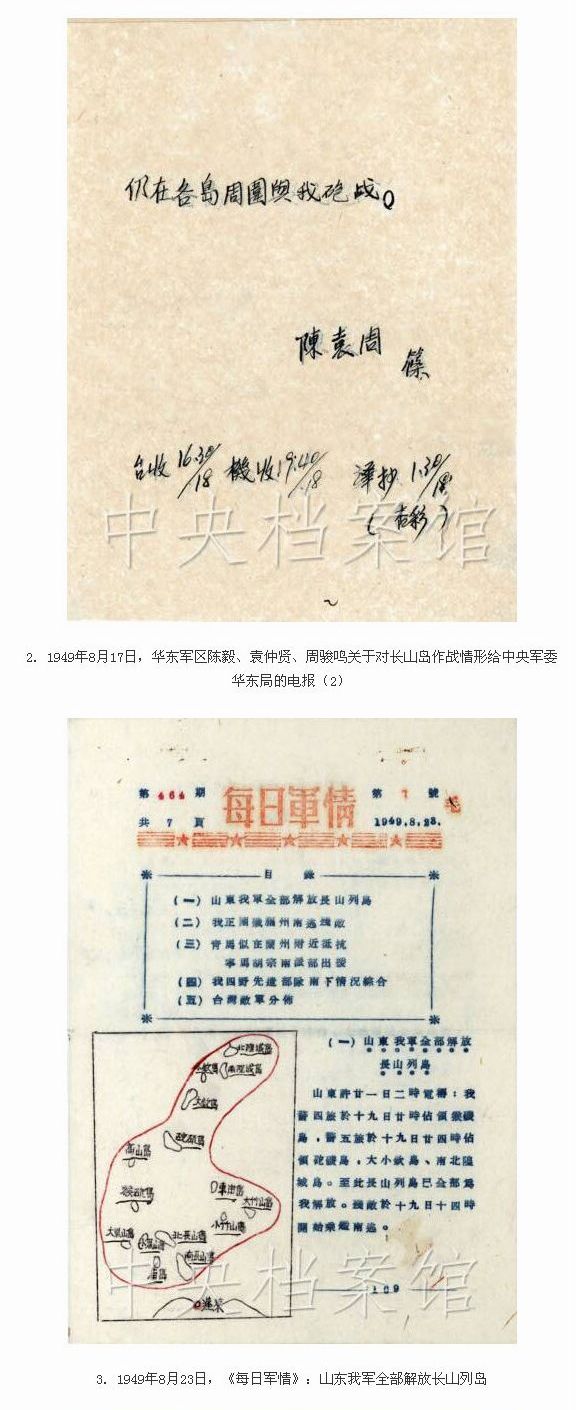 仍在各島周圍與我砲战。
陳袁周
篠
台收16.30/18 機收19:40/18 譯抄1.30/18
中央档案馆
2. 1949年8月17日，华东军区陈毅、袁仲贤、周骏鸣关于对长山岛作战情形给中央军委
华东局的电报（2）
第464期
每日軍情
第1號
共7頁
1949.8.23.
目錄
(一) 山東我軍全部解放長山列島
(二) 我正圍殲福州南逃殘敵
(三) 青馬似在蘭州附近抵抗
寧馬胡宗南派部出援
(四) 我四野先遣部隊南下情況綜合
(五) 台灣敵軍分佈
北隍城島
南隍城島
大欽島
砣磯島
高山島
車由島
大竹山島
小竹山島
北長山島
南長山島
廟島
蓬萊
(一) 山東我軍全部解放
長山列島
山東許廿一日二時電稱：我
警四旅於十九日廿時佔領猴磯
島，警五旅於十九日廿四時佔
領砣磯島，大小欽島、南北隍
城島。至此長山列島已全部爲
我解放。殘敵於十九日十四時
開始乘艦南逃。
109
中央档案馆
3. 1949年8月23日，《每日军情》：山东我军全部解放长山列岛